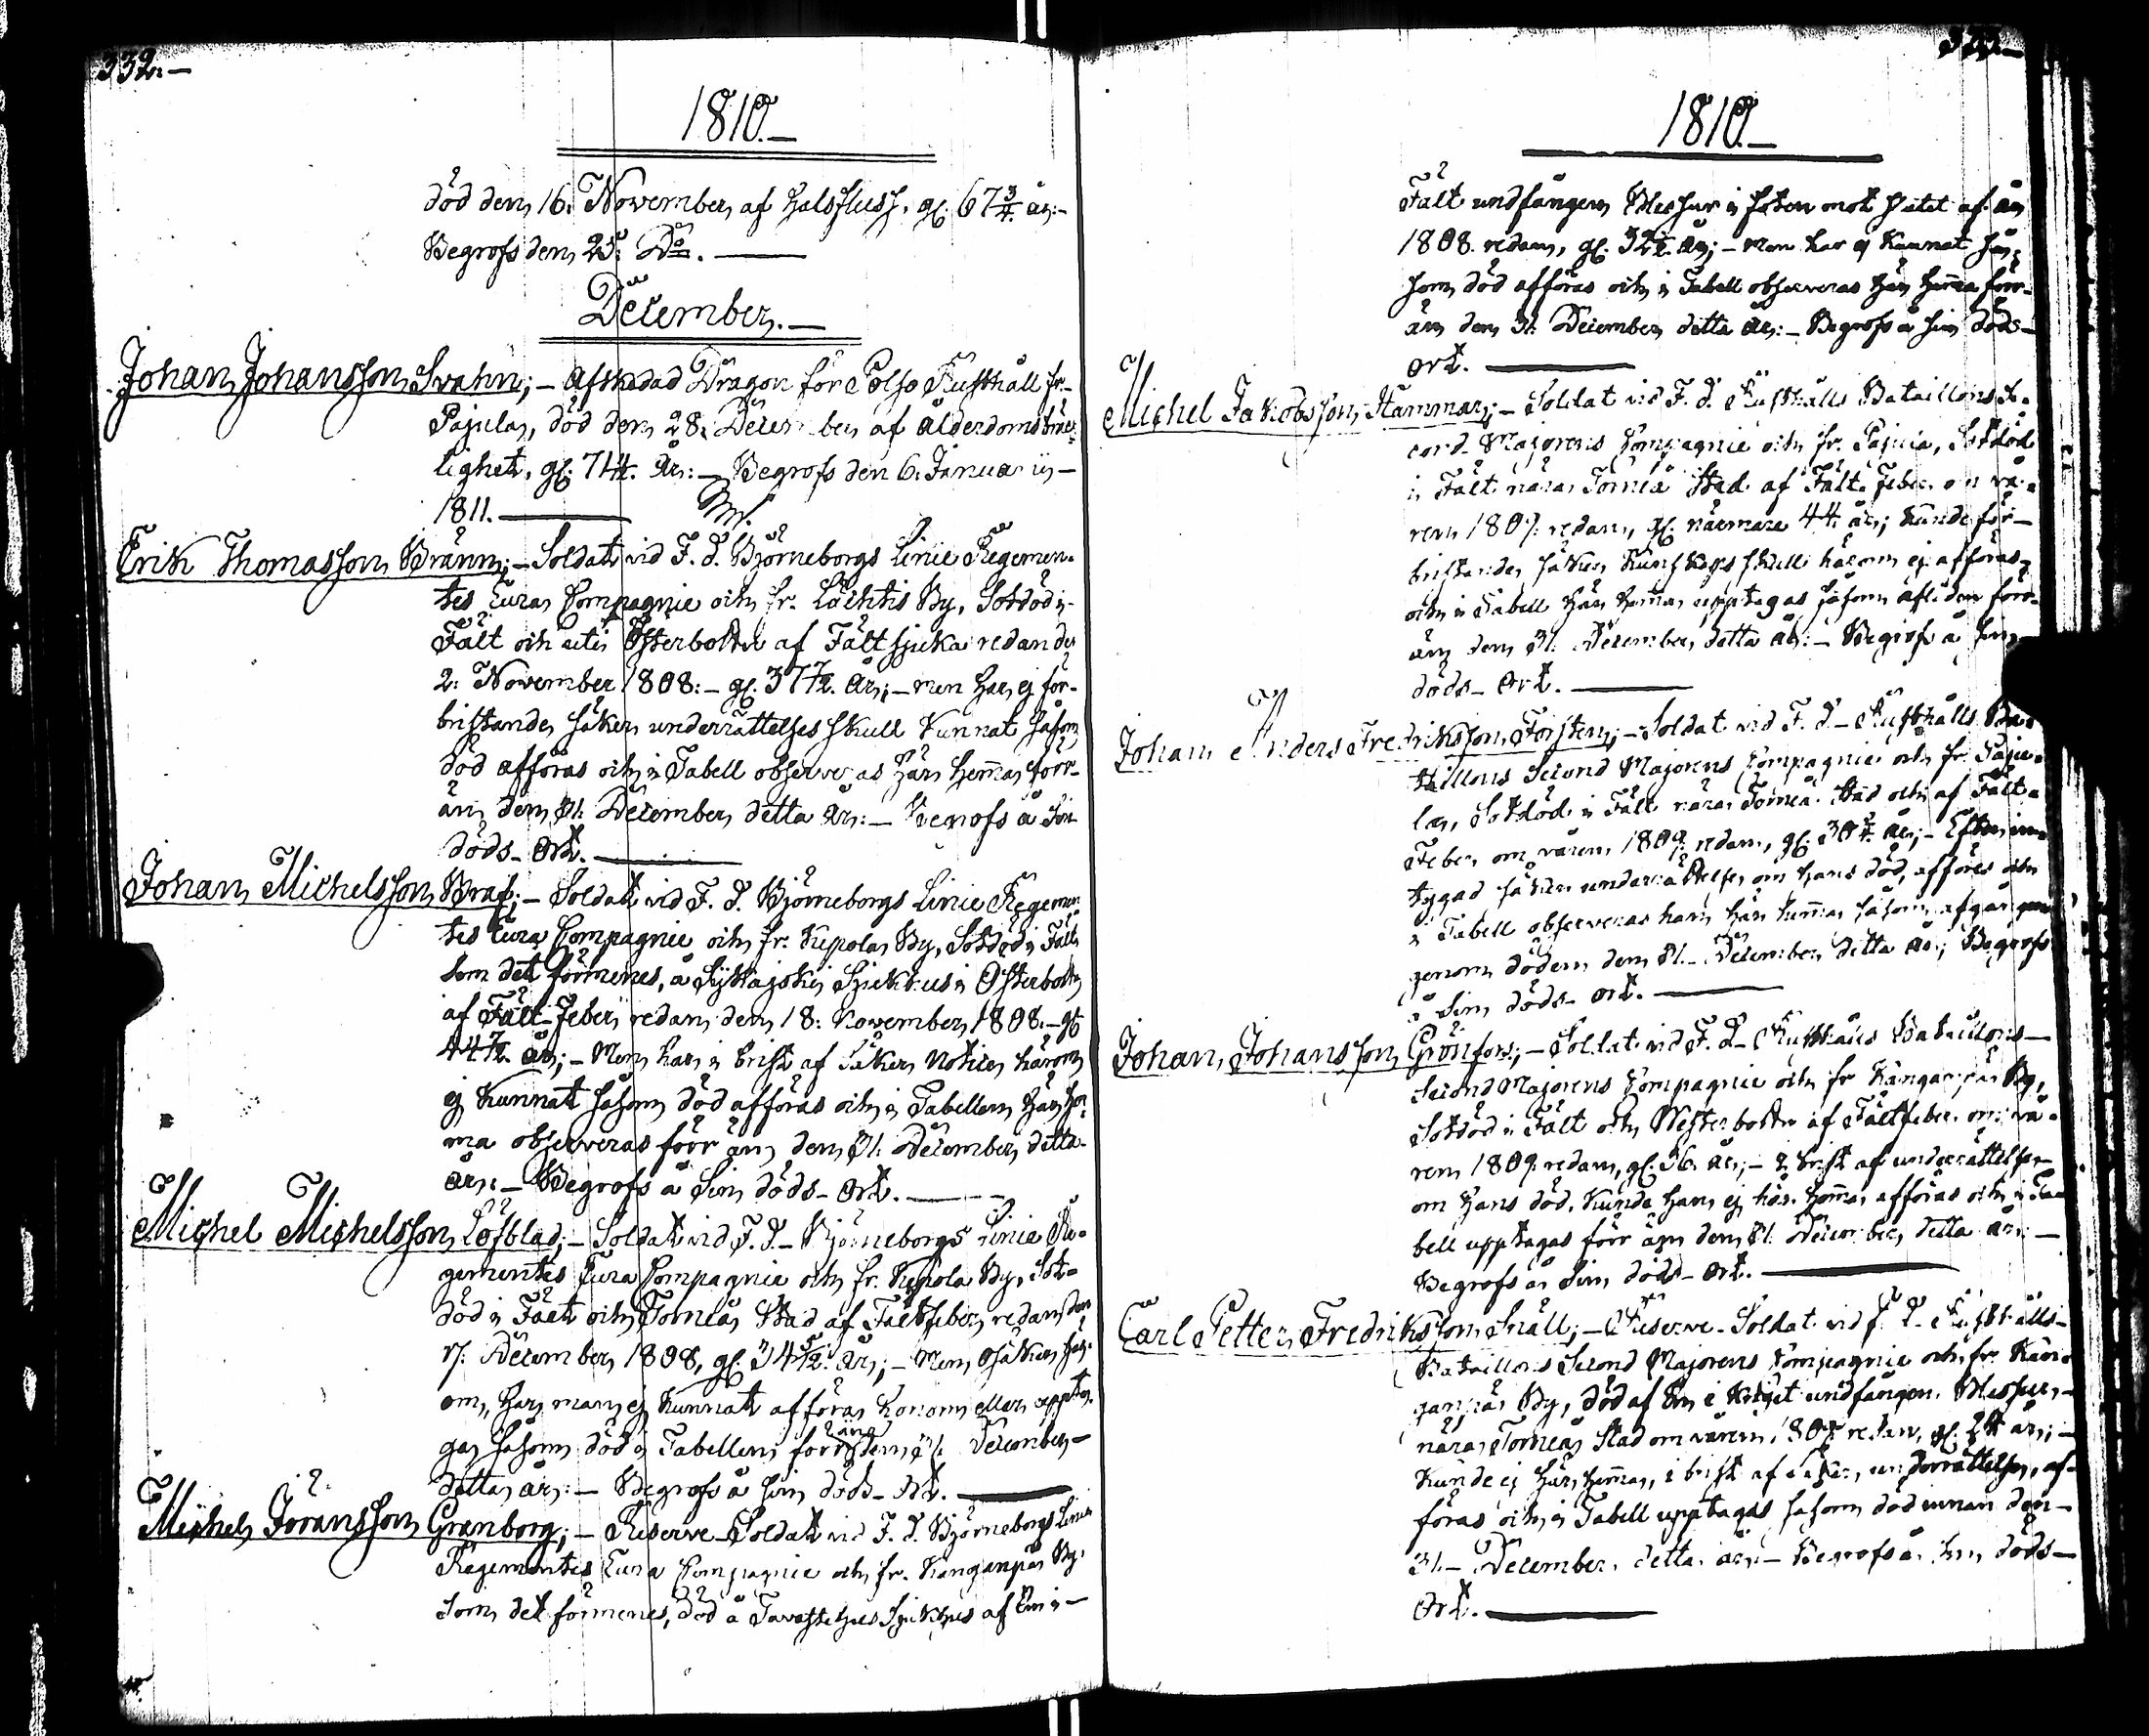 332.—
1810.—
död den 16. November af Halsfluss. gl. 67 3/4. år:-
Begrofs den 25. Do. —
December.—
Johan Johansson Svahn;— Afskedad Dragon för Polso Rusthåll fr.
Pajula, död den 28. December af Ålderdomsbräck-
lighet, gl. 74 år:— Begrofs den 6. Januarii —
1811. —
Erik Thomasson Bränn;— Soldat vid F. d. Björneborgs Linie Regemen-
tes Eura Compagnie och fr. Lächtis By, Sotdöd i
Fält och uti Österbotten af Fältsjuka redan den
2. November 1808:— gl. 37 1/2. år;— men har ej för-
bristande säker underrättelses skull kunnat såsom
död afföras och i Tabell observeras här hemma förr-
än den 31. December detta år:— Begrofs å sin
döds-Ort. —
Johan Michelsson Braf;— Soldat vid F. d. Björneborgs Linie Regemen-
tes Eura Compagnie och fr. Kepola By, Sotdöd i Fält
som det förmenes, å Sjukhus i Österbotten
af Fält-Feber redan den 18. November 1808.— gl.
44 år;— Men har i brist af säker notice härom
ej kunnat såsom död afföras och i Tabellen här hem-
ma observeras förr än den 31. December detta
år:— Begrofs å Sin döds-Ort. —
Michel Michelsson Löfblad;— Soldat vid F. d.- Björneborgs Linie Re-
gementes Eura Compagnie och fr. Kepola By, Sot-
död i Fält och Torneå Stad af Fältfeber redan den
17. December 1808, gl. 34 år;— Men osäker här-
om, har man ej kunnat afföra honom eller uppta-
gas såsom död i Tabellen förr än den 31. December
detta år:— Begrofs å sin döds-Ort. —
Michel Jöransson Granborg;— Reserve-Soldat vid F. d. Björneborgs Linie
Regementes Eura Compagnie och fr. Kanganpää By.
som det förmenes, död å Tavastehus Sjukhus af En i —
1810.—
Fält undfången Blessur i foten mot slutet af år
1808. redan, gl. 32 1/2. år;— Men har ej kunnat så-
som död afföras och i Tabell observeras här hemma förr-
än den 31. December detta år:— Begrofs å sin döds-
ort. —
Michel Jakobsson Hammar;— Soldat vid F. d. Rusthålls Bataillons Se-
cond Majorens Compagnie och fr. Pajula, Sotdöd
i Fält nära Torneå Stad af Fält-Feber om vå-
ren 1809. redan, gl. närmare 44. år; kunde för
bristande säker kunskaps skull härom ej afföras
och i Tabell här hemma upptagas såsom afliden förr-
än den 31. December detta år:— Begrofs å sin
döds-Ort. —
Johan Anders Fredriksson Forsten;— Soldat vid F. d.- Rusthålls Ba-
taillons Second Majorens Compagnie och fr. Paju-
la, Sotdöd i Fält nära Torneå Stad och af Fält-
Feber om våren 1809. redan, gl. 30 3/4. år;—
säker underrättelse om hans död, affördes och
i Tabell observeras han här hemma såsom afgången
genom döden den 31.- December detta år; Begrofs
å Sin döds-ort. —
Johan Johansson Grönfors;— Soldat vid F. d.- Rusthålls Bataillons —
Second Majorens Compagnie och fr Kanganpää By,
Sotdöd i Fält och Westerbotten af Fältfeber om vå-
ren 1809. redan, gl. 36. år;— i brist af underrättelse
om hans död, kunde han ej här hemma afföras och i Ta-
bell upptagas förr än den 31. December detta år:—
Begrofs å Sin döds-ort. —
Carl Petter Fredriksson Snäll;— Reserve-Soldat vid F. d.- Rusthålls-
Bataillons Second Majorens Compagnie och fr. Kan-
ganpää By, död af En i Kriget undfången Blessur,—
nära Torneå Stad om våren 1809 redan, gl. 24 år;—
kunde ej här hemma, i brist af säker underrättelse, af-
föras och i Tabell upptagas såsom död innan den—
31.— December detta år:— Begrofs å sin döds—
Ort. —